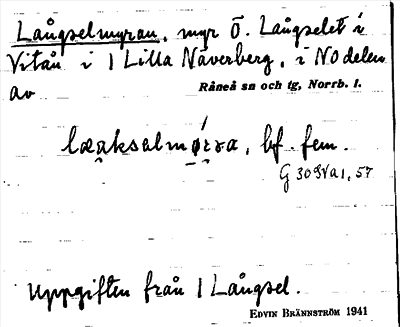 Långselmyran, myr ö. Långselet i
Vitån i 1 Lilla Näverberg, i NO delen
av
Råneå sn och tg, Norrb. l.
bf. fem.
G 30 SV a 1, 57
Uppgiften från 1 Långsel.
EDVIN BRÄNNSTRÖM 1941